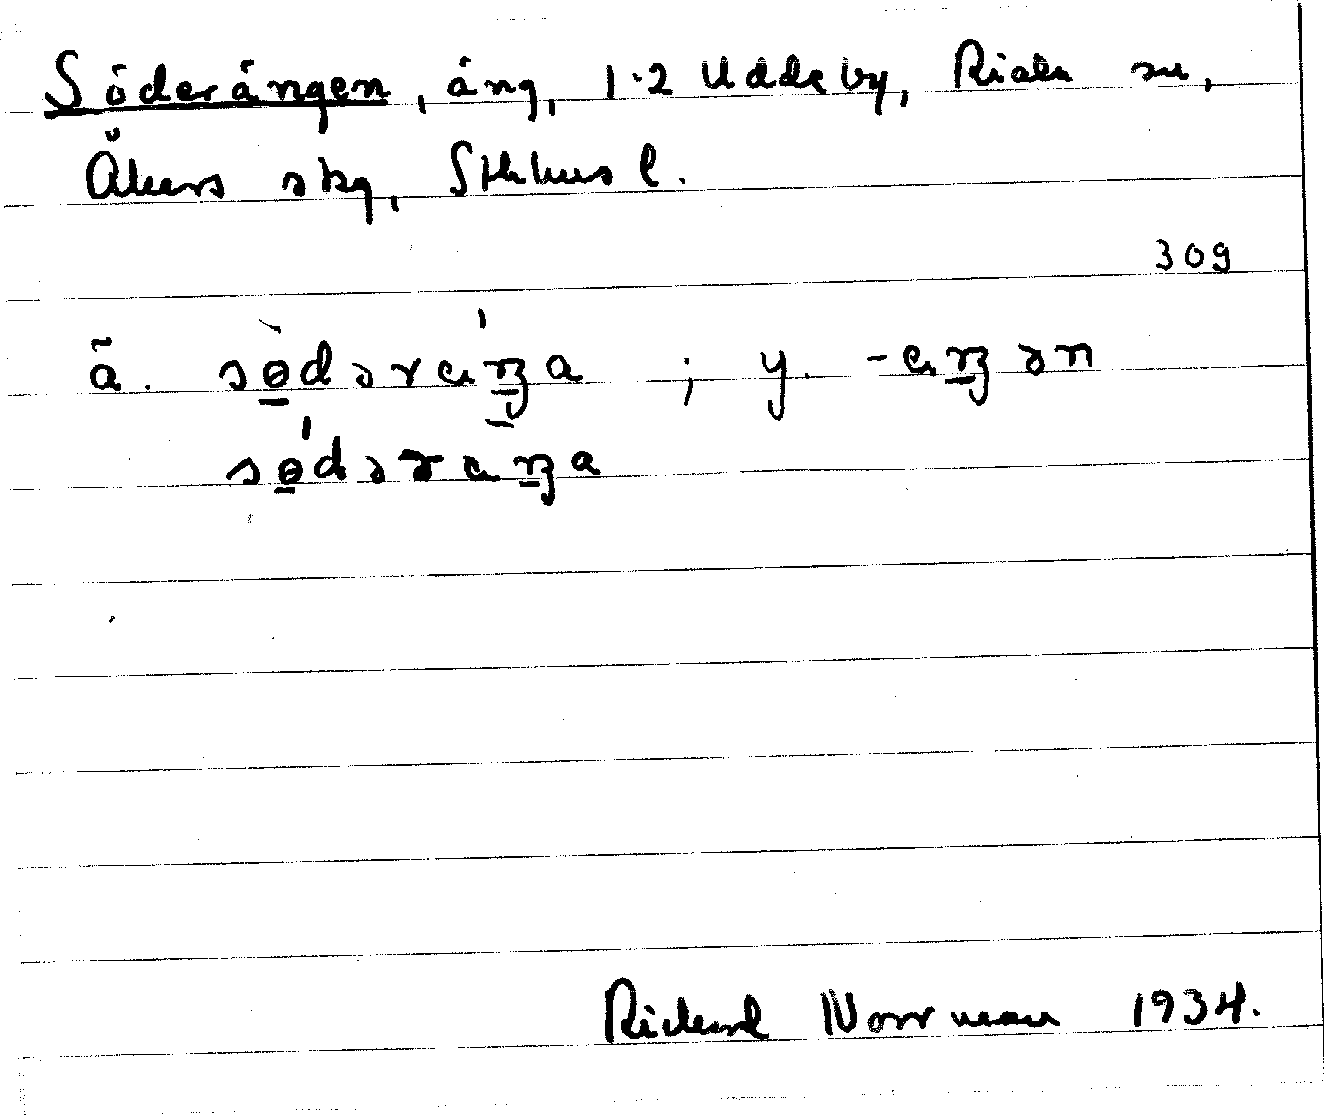 Söderängen, äng, 1-2 Uddeby, Riala sn,
Åkers skg, Sthlms l.
309
ä. sødəræŋa ; y. -æŋən
sødəræŋa
Rickard Norrman 1934.